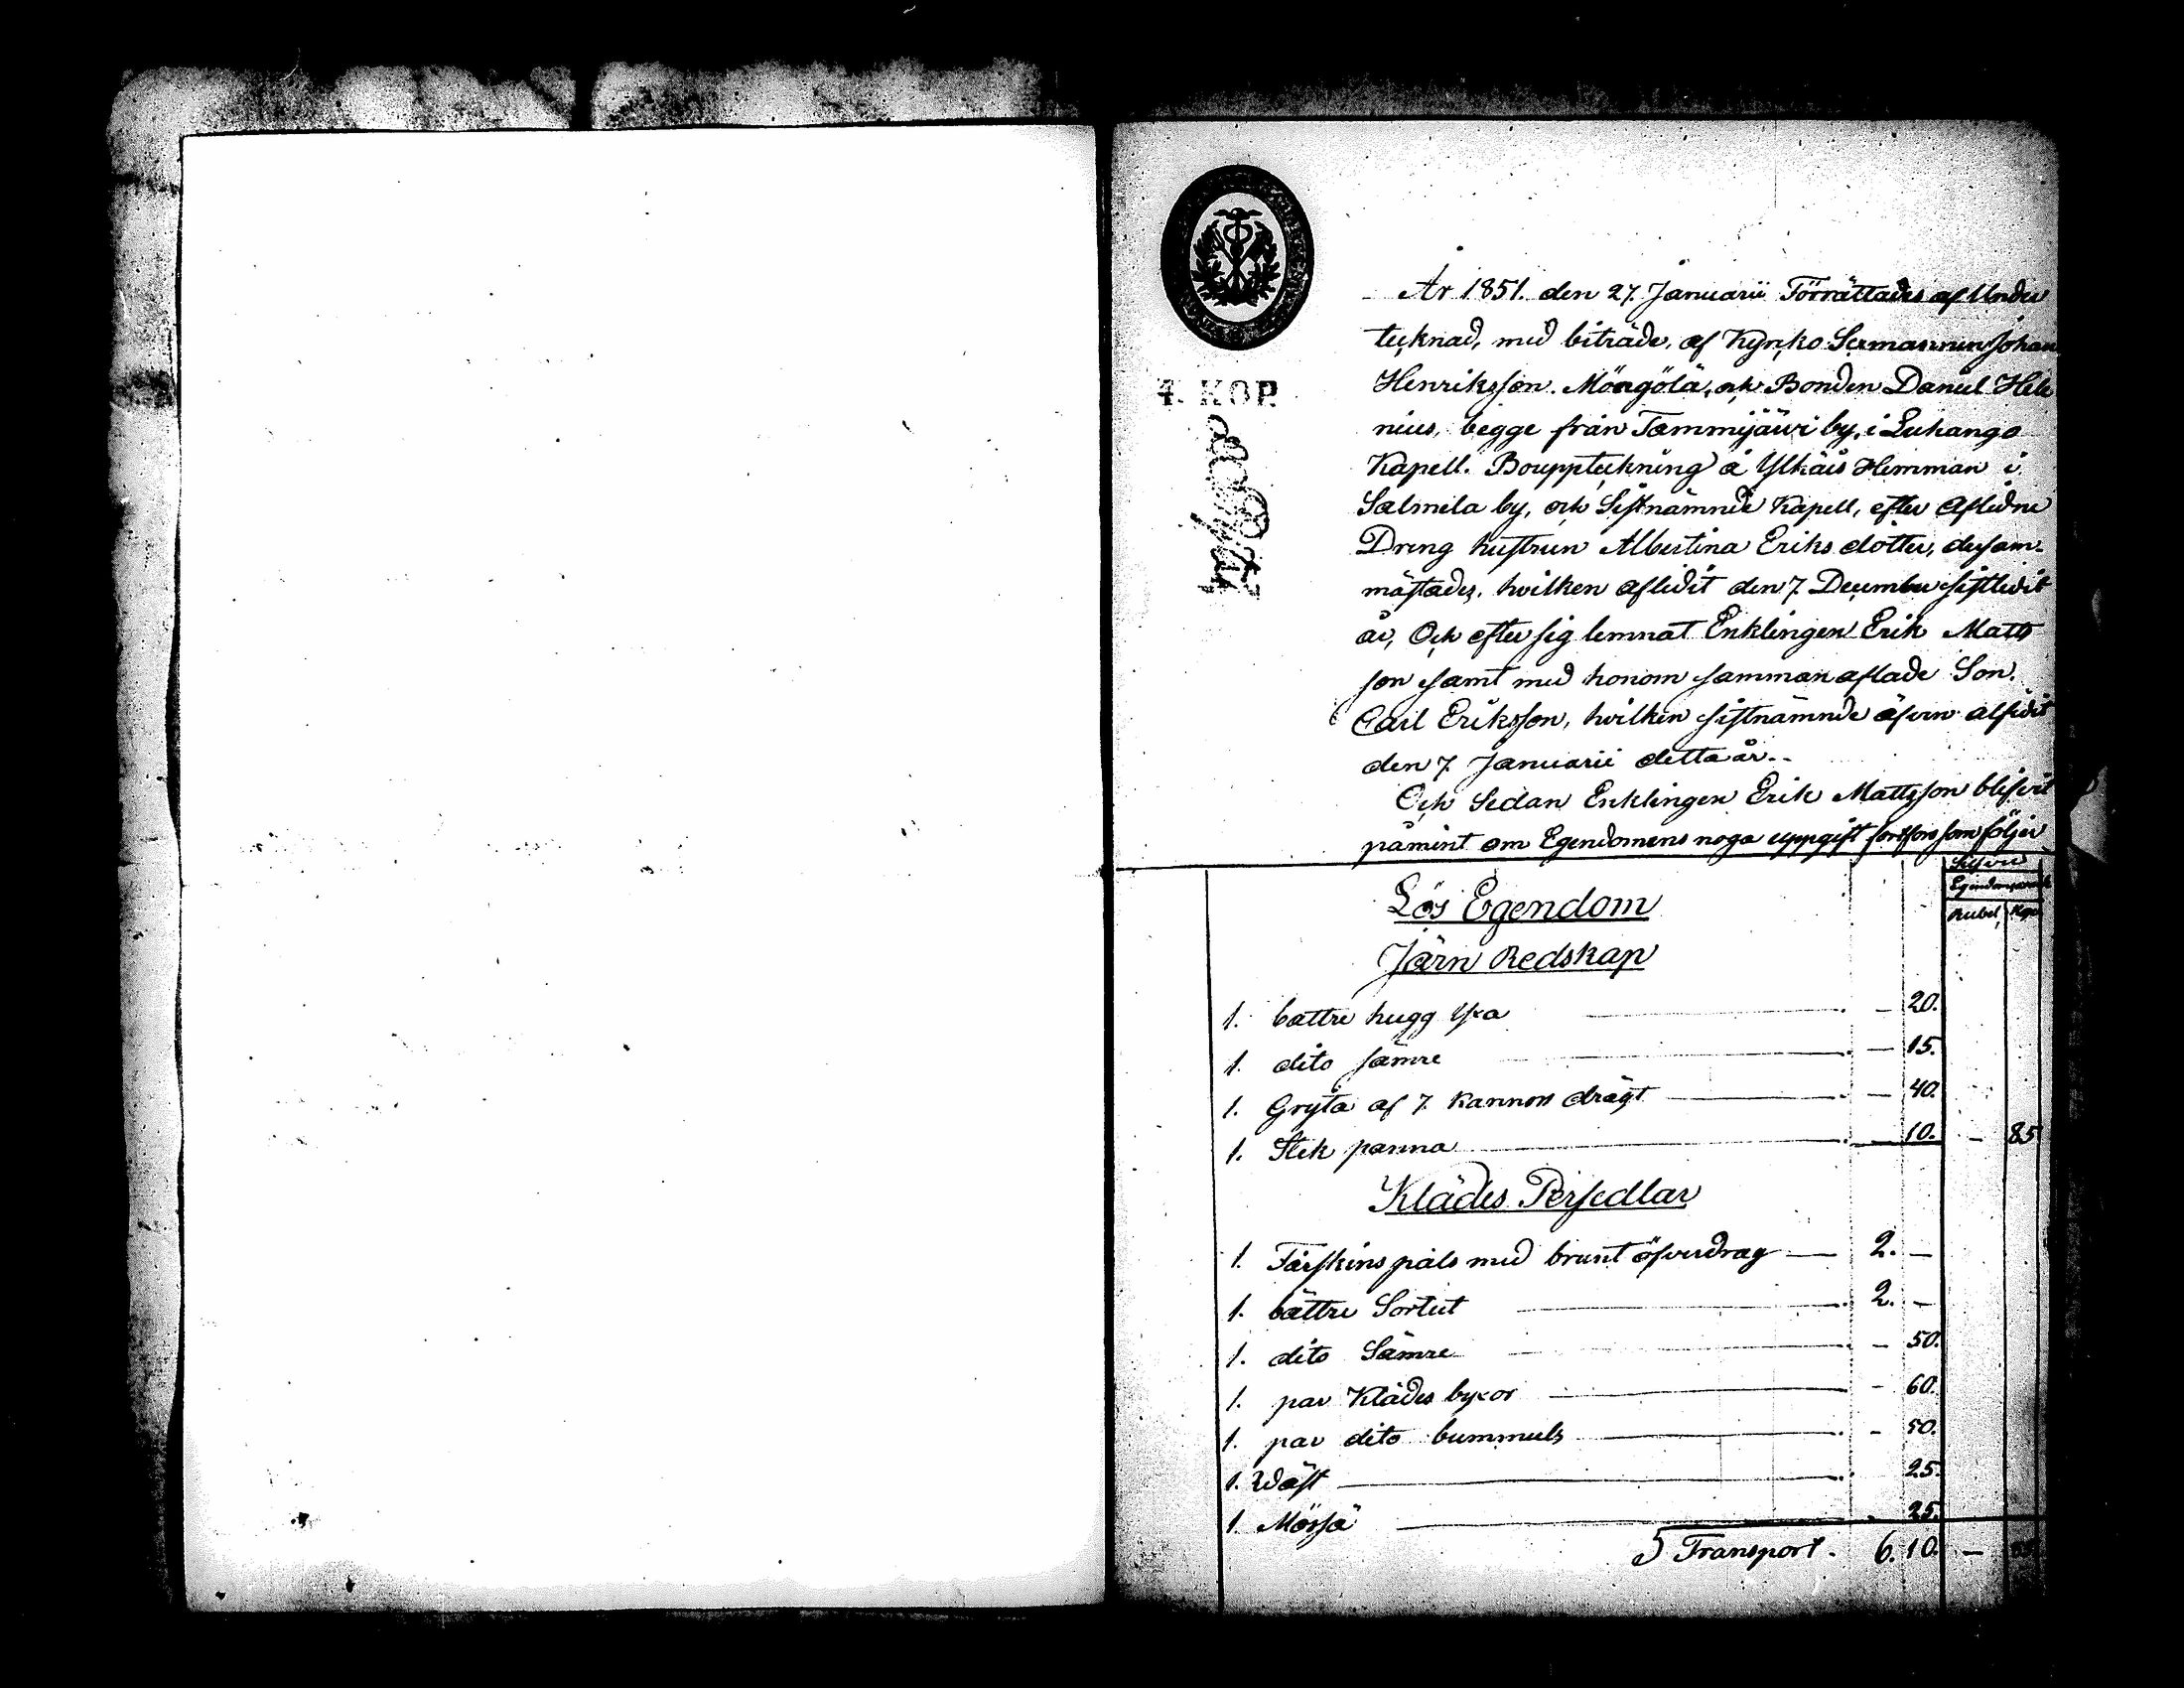 År 1851. den 27. Januarii Förrättades af Under
tecknad, med biträde, af Kyrko Sexmannen Johan
Henriksson. Möngölä, och Bonden Daniel Hele
nius, begge från Tammijärwi by, i Luhango
Kapell. Bouppteckning å Ylhäis Hemman i
Salmela by, och Sistnämnde Kapell, efter Aflidne
Dreng hustrun Albertina Eriks dotter, dersam-
mästades, hwilken aflidit den 7. December sistledit
år, Och efter sig lemnat Enklingen Erik Matts
son samt med honom samman aflade Son.
Carl Eriksson, hwilken sistnämnde äfven alfidit
den 7. Januarii detta år.-
Och Sedan Enklingen Erik Mattsson blifvit
påmint om Egendomens noga uppgift som följer
4. KOP.
Silfver
Rubel Kop
Lös Egendom
Järn Redskap
1. battre hugg Yxa — 20.
1. dito sämre — 15.
1. Gryta af 7. kannors drägt — 40.
1. Stek panna — 10. — 85
Klädes Persedlar
1. Fårskins päls med brunt öfverdrag — 2. —
1. bättre Sortut 2. —
1. dito Sämre — 50.
1. par Klädes byxor — 60.
1. par dito bummuls — 50.
1. Wäst 25.
1. Mössa 25.
Transport. 6. 10. —